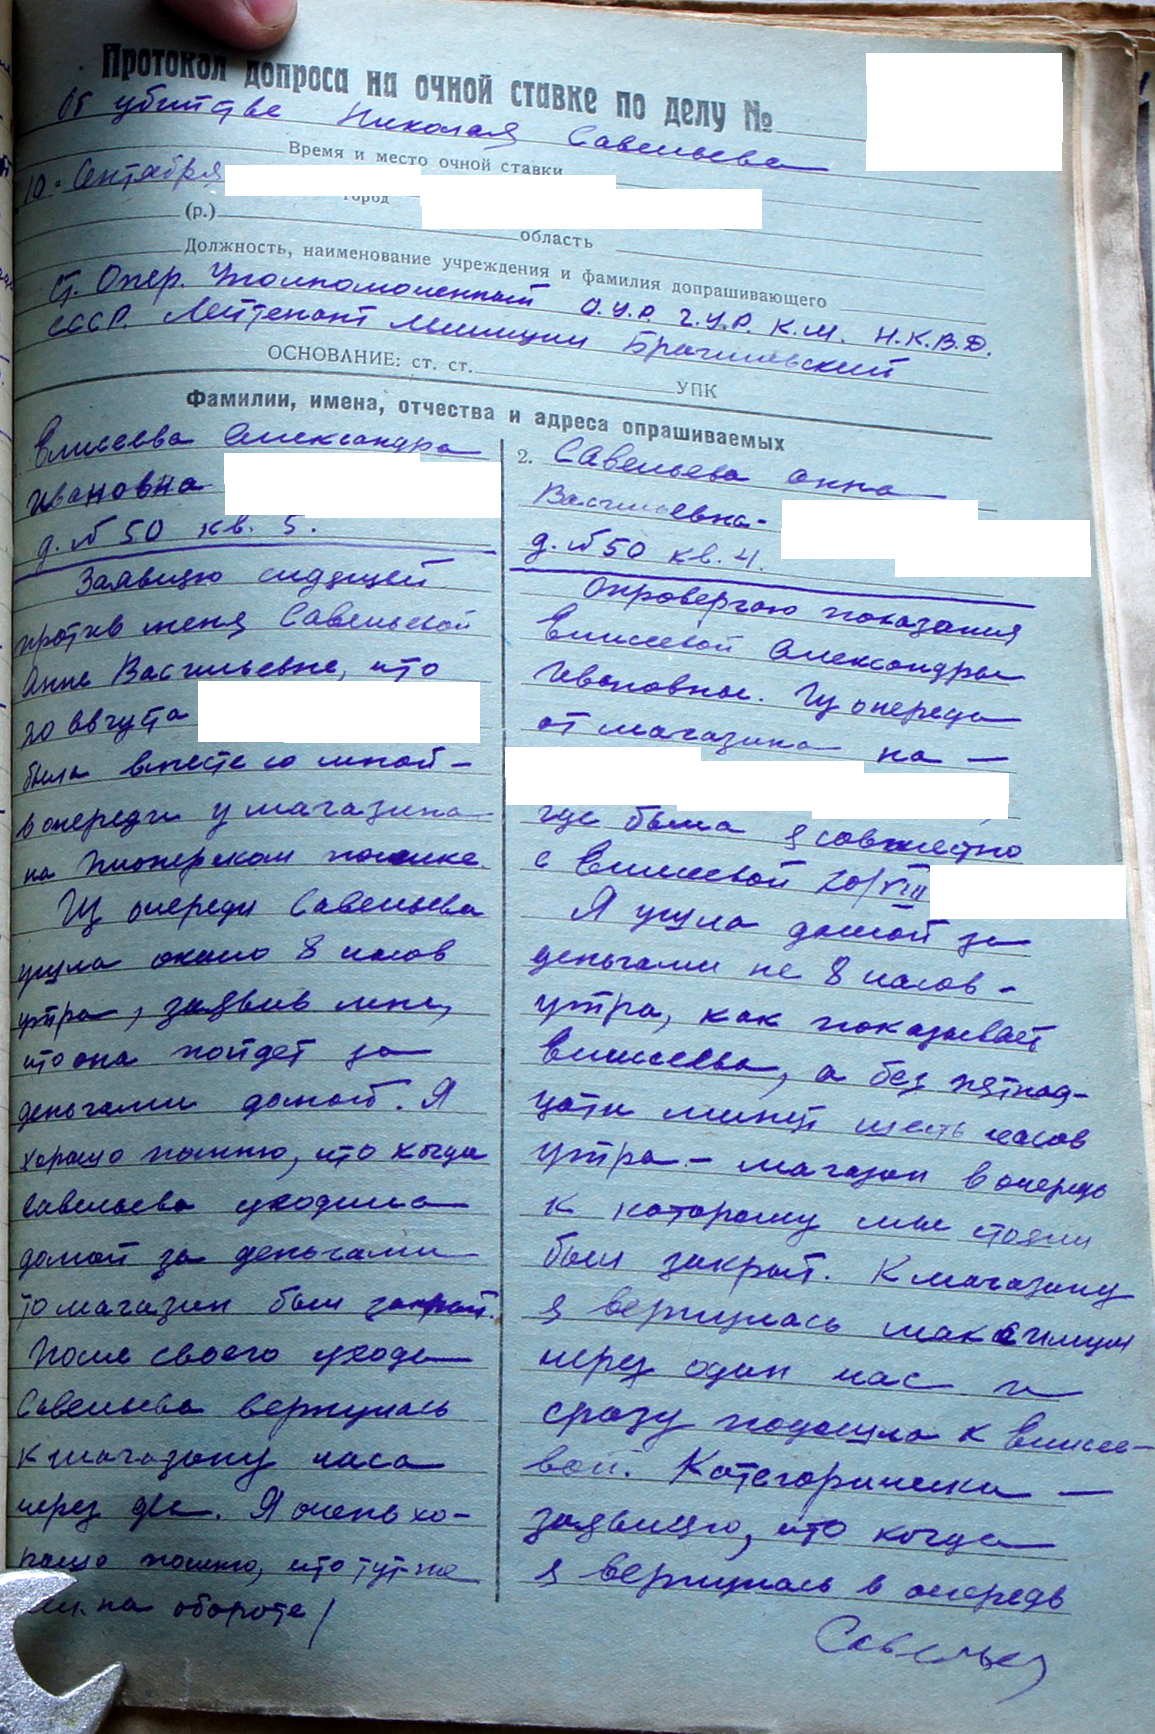 Протокол допроса на очной ставке по делу №
Об убийстве Николая Савельева
Время и место очной ставки
10 - Сентября
город
(р.) область
Должность, наименование учреждения и фамилия допрашивающего
Ст. Опер. Уполномоченный О.У.Р. Г.У.Р.К.М. Н.К.В.Д.
СССР. Лейтенант Милиции
ОСНОВАНИЕ: ст. ст. УПК
Фамилии, имена, отчества и адреса опрашиваемых
Елисеева Александра
Ивановна
д. № 50 кв. 5.
Заявляю сидящей
против меня Савельевой
Анне Васильевне, что
20 августа
была вместе со мной -
в очереди у магазина
на Пионерском поселке.
Из очереди Савельева
ушла около 8 часов
утра, заявив мне,
что она пойдет за
деньгами домой. Я
хорошо помню, что когда
Савельева уходила
домой за деньгами
то магазин был закрыт.
После своего ухода
Савельева вернулась
к магазину часа
через два. Я очень хо-
рошо помню, что тут-же
см. на обороте/
2. Савельева Анна
Васильевна -
д. № 50 кв. 4.
Опровергаю показания
Елисеевой Александры
Ивановны. Из очереди
от магазина на -
где была я совместно
с Елисеевой 20/VIII
Я ушла домой за
деньгами не 8 часов -
утра, как показывает
Елисеева, а без пятнад-
цати минут шесть часов
утра - магазин в очередь
к которому мы стояли
был закрыт. К магазину
я вернулась максимум
через один час и
сразу подошла к Елисе-
вой. Категорически -
заявляю, что когда
я вернулась в очередь
Савельева